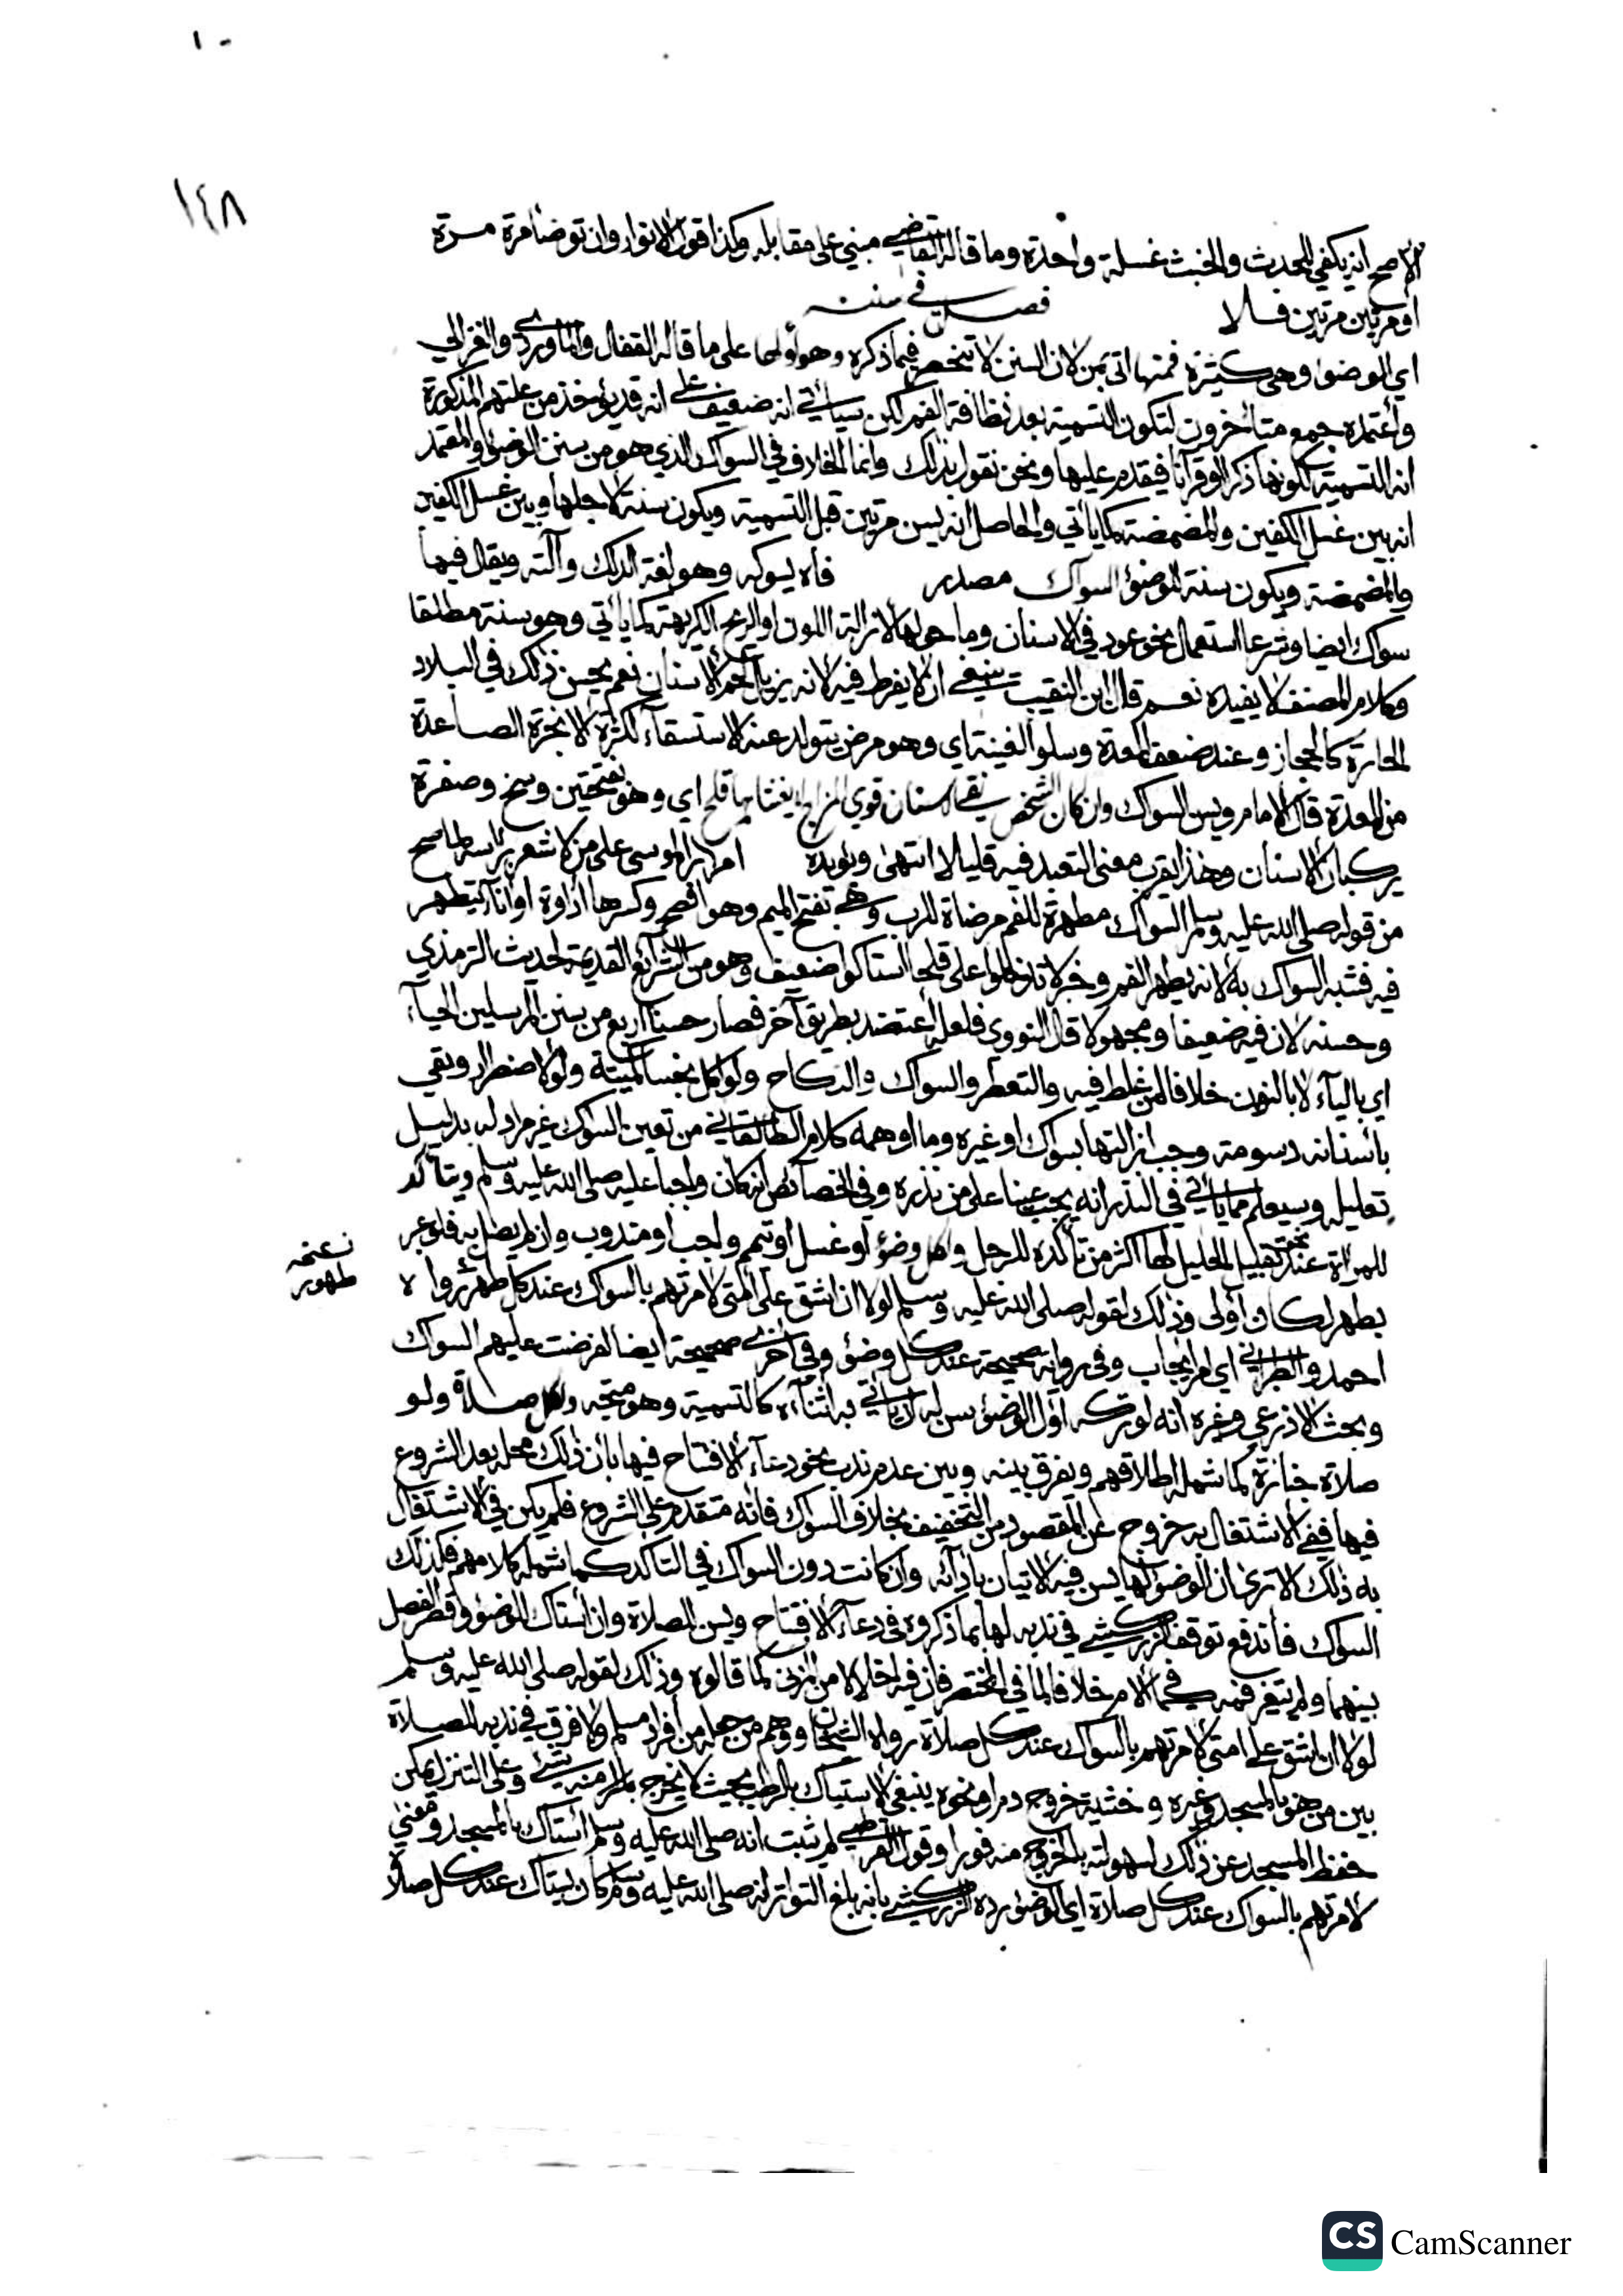 ١٠
١٤٨
الاصح انه يكفي للحدث والخبث غسلة واحدة وما قاله القاضي مبني على مقابله وكذا قول الانوار وان توضأ مرة مرة
او مرتين مرتين فلا فصل في سننه
اي الوضوء وهي كثيرة فمنها اتى بمن لان السنن لا تنحصر فيما ذكره وهو أولها على ما قاله القفال والماوردي والغزالي
واعتمده جمع متأخرون لتكون التسمية بعد نظافة الفم لكن سيأتي انه ضعيف على انه قد يؤخذ من علتهم المذكورة
انه للتسمية لكونها ذكرا او قرآنا فيقدم عليها ونحن نقول بذلك وانما الخلاف في السواك الذي هو من سنن الوضوء والمعتمد
انه بين غسل الكفين والمضمضة كما يأتي والحاصل انه يسن مرتين قبل التسمية ويكون سنة لاجلها وبين غسل الكفين
والمضمضة ويكون سنة للوضوء السواك مصدر فاه يسوكه وهو لغة الدلك وآلته ويقال فيها
سواك ايضا وشرعا استعمال نحو عود في الاسنان وما حولها لازالة اللون او الريح الكريهة كما يأتي وهو سنة مطلقا
وكلام المصنف لا يفيده نعم قال ابن النقيب ينبغي ان لا يفرط فيه لانه يزيل لحم الاسنان نعم يحسن ذلك في البلاد
الحارة كالحجاز وعند ضعف المعدة وسلو القينة اي وهو مرض يتولد عنه الاستسقاء لكثرة الابخرة الصاعدة
من المعدة قال الامام ويسن السواك وان كان الشخص نقي الاسنان قوي المزاج لا يغشاها قلح اي وهو بفتحتين وسخ وصفرة
يركبان الاسنان وهذا يقرب معنى التعبد فيه قليلا انتهى ويؤيده امرار الموسى على من لا شعر برأسه لما صح
من قوله صلى الله عليه وسلم السواك مطهرة للفم مرضاة للرب وهي بفتح الميم وهو افصح وكسرها اداوة او اناء يتطهر
فيه فشبه السواك به لانه يطهر الفم وخبر لا تدخلوا علي قلحا استاكوا ضعيف وهو من الشرائع القديمة لحديث الترمذي
وحسنه لان فيه ضعيفا ومجهولا قال النووي فلعله اعتضد بطريق آخر فصار حسنا اربع من سنن المرسلين الحياء
اي بالياء لا بالنون خلافا لمن غلط فيه والتعطر والسواك والنكاح ولو اكل نجسا كميتة ولو لاضطرار وبقي
بأسنانه دسومة وجب ازالتها بسواك او غيره وما اوهمه كلام الطالقاني من تعين السواك غير مراد له بدليل
تعليله وسيعلم مما يأتي في النذر انه يجب عينا على من نذره وفي الخصائص انه كان واجبا عليه صلى الله عليه وسلم ويتأكد
للمرأة عند تقبيل الحليل لها اكثر من تأكده للرجل ولكل وضوء او غسل او تيمم واجب او مندوب وان لم يصل به فلو عبر
نسخة
طهور
بطهر لكان أولى وذلك لقوله صلى الله عليه وسلم لولا ان اشق على أمتي لامرتهم بالسواك عند كل طهر رواه
احمد والطبراني اي امر ايجاب وفي رواية صحيحة عند كل وضوء وفي اخرى صحيحة ايضا لفرضت عليهم السواك
وبحث الاذرعي وغيره انه لو تركه اول الوضوء سن له ان يأتي به اثناءه كالتسمية وهو متجه ولكل صلاة ولو
صلاة جنازة كما شمله اطلاقهم ويفرق بينه وبين عدم ندب نحو دعاء الافتتاح فيها بأن ذلك محله بعد الشروع
فيها ففي الاشتغال به خروج عن المقصود من التخفيف بخلاف السواك فانه متقدم على الشروع فلم يكن في الاشتغال
به ذلك الا ترى ان الوضوء لها يسن فيه الاتيان بادآبه وان كانت دون السواك في التأكد كما شمله كلامهم فكذلك
السواك فاندفع توقف الزركشي في ندبه لها بما ذكروه في دعاء الافتتاح ويسن للصلاة وان استاك للوضوء وقصر الفصل
بينهما ولم يتغير فمه في الام خلافا لما في المختصر فان فيه اخلالا من المزني كما قالوه وذلك لقوله صلى الله عليه وسلم
لولا ان اشق على امتي لامرتهم بالسواك عند كل صلاة رواه الشيخان ووهم من جعله من افراد مسلم ولا فرق في ندبه للصلاة
بين من هو بالمسجد وغيره وخشية خروج دم او نحوه ينبغي الاستياك بالرطب بحيث لا يخرج بامراره منه شيء وعلى التنزل يمكن
حفظ المسجد عن ذلك لسهولته بالخروج منه فورا وقول القرطبي لم يثبت انه صلى الله عليه وسلم استاك بالمسجد ومعنى
لامرتهم بالسواك عند كل صلاة اي الوضوء رده الزركشي بانه بلغ التواتر انه صلى الله عليه وسلم كان يستاك عند كل صلاة
CS CamScanner